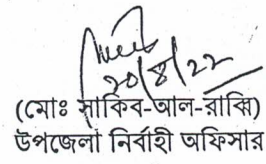 ২০/৪/২২
(মোঃ সাকিব-আল-রাব্বি)
উপজেলা নির্বাহী অফিসার